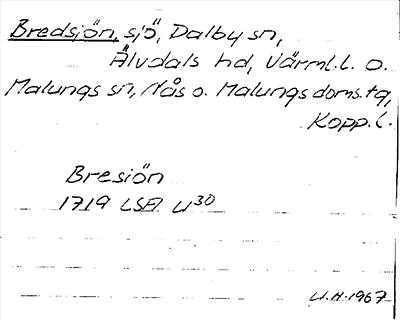 Bredsjön, sjö, Dalby sn,
Älvdals hd, Värml.l. o.
Malungs sn, Nås o. Malungs doms.tg,
Kopp.l.
Bresiön
1719 LSA U30
U.H. 1967